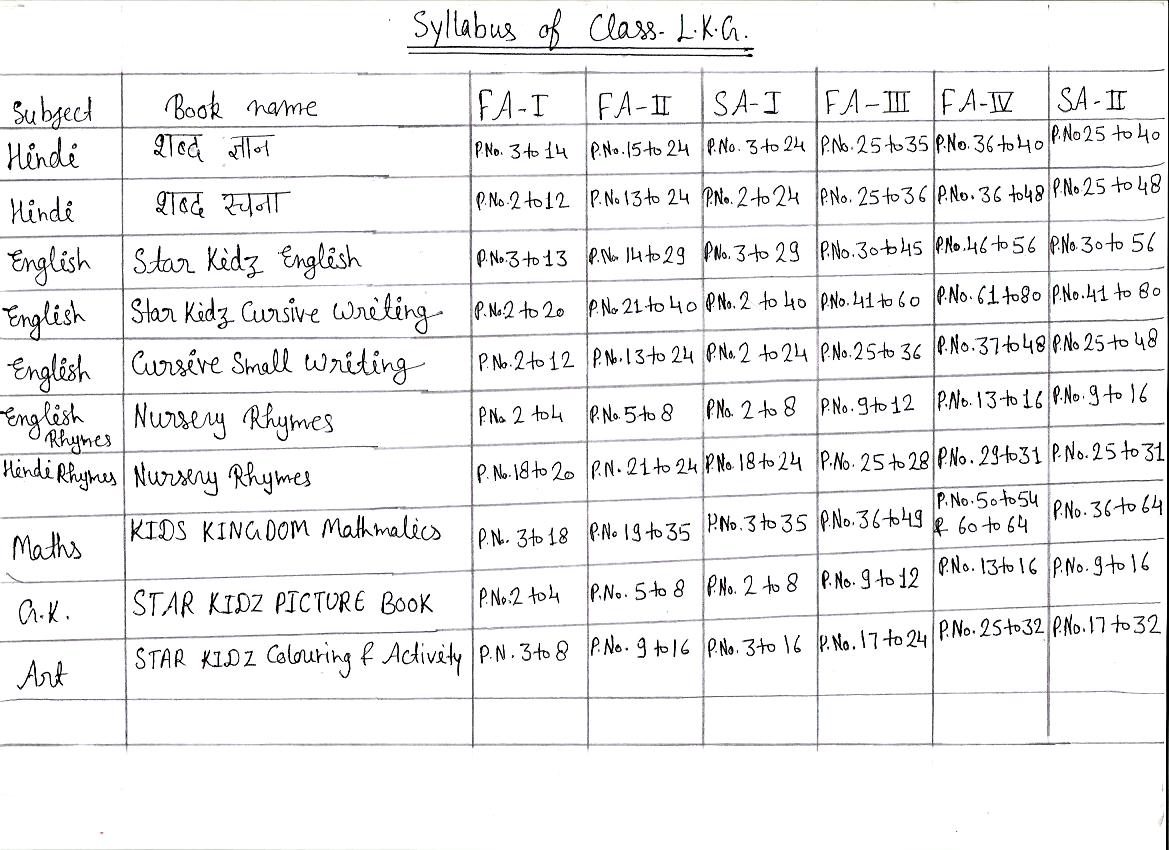 Syllabus of Class- L.K.G.
Subject Book name FA-I FA-II SA-I FA-III FA-IV SA-II
Hindi शब्द ज्ञान P.No. 3 to 14 P.No. 15 to 24 P.No. 3 to 24 P.No. 25 to 35 P.No. 36 to 40 P.No 25 to 40
Hindi शब्द रचना P.No. 2 to 12 P.No 13 to 24 P.No. 2 to 24 P.No. 25 to 36 P.No. 36 to 48 P.No 25 to 48
English Star Kidz English P.No. 3 to 13 P.No. 14 to 29 P.No. 3 to 29 P.No. 30 to 45 P.No. 46 to 56 P.No. 30 to 56
English Star Kidz Cursive Writing P.No. 2 to 20 P.No 21 to 40 P.No. 2 to 40 P.No. 41 to 60 P.No. 61 to 80 P.No. 41 to 80
English Cursive Small Writing P.No. 2 to 12 P.No. 13 to 24 P.No. 2 to 24 P.No. 25 to 36 P.No. 37 to 48 P.No 25 to 48
English Rhymes Nursery Rhymes P.No. 2 to 4 P.No. 5 to 8 P.No. 2 to 8 P.No. 9 to 12 P.No. 13 to 16 P.No. 9 to 16
Hindi Rhymes Nursery Rhymes P.No. 18 to 20 P.N. 21 to 24 P.No. 18 to 24 P.No. 25 to 28 P.No. 29 to 31 P.No. 25 to 31
Maths KIDS KINGDOM Mathmalics P.N. 3 to 18 P.No 19 to 35 P.No. 3 to 35 P.No. 36 to 49 P.No. 50 to 54 & 60 to 64 P.No. 36 to 64
G.K. STAR KIDZ PICTURE BOOK P.No. 2 to 4 P.No. 5 to 8 P.No. 2 to 8 P.No. 9 to 12 P.No. 13 to 16 P.No. 9 to 16
Art STAR KIDZ Colouring & Activity P.N. 3 to 8 P.No. 9 to 16 P.No. 3 to 16 P.No. 17 to 24 P.No. 25 to 32 P.No. 17 to 32